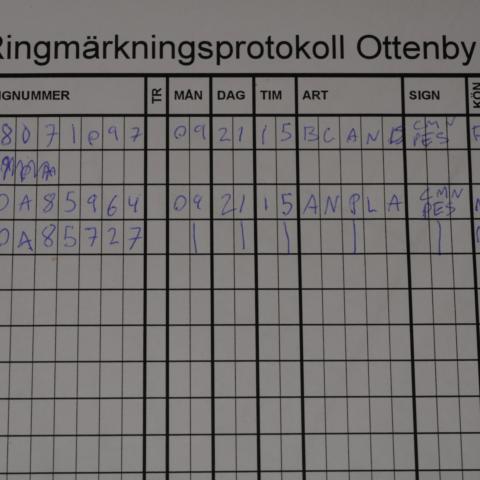 Ringmärkningsprotokoll Ottenby
GNUMMER TR MÅN DAG TIM ART SIGN KÖN
8071097 09 21 15 BCAND CMN PES
0A85964 09 21 15 ANPLA CMN PES
0A85727 | | | | |